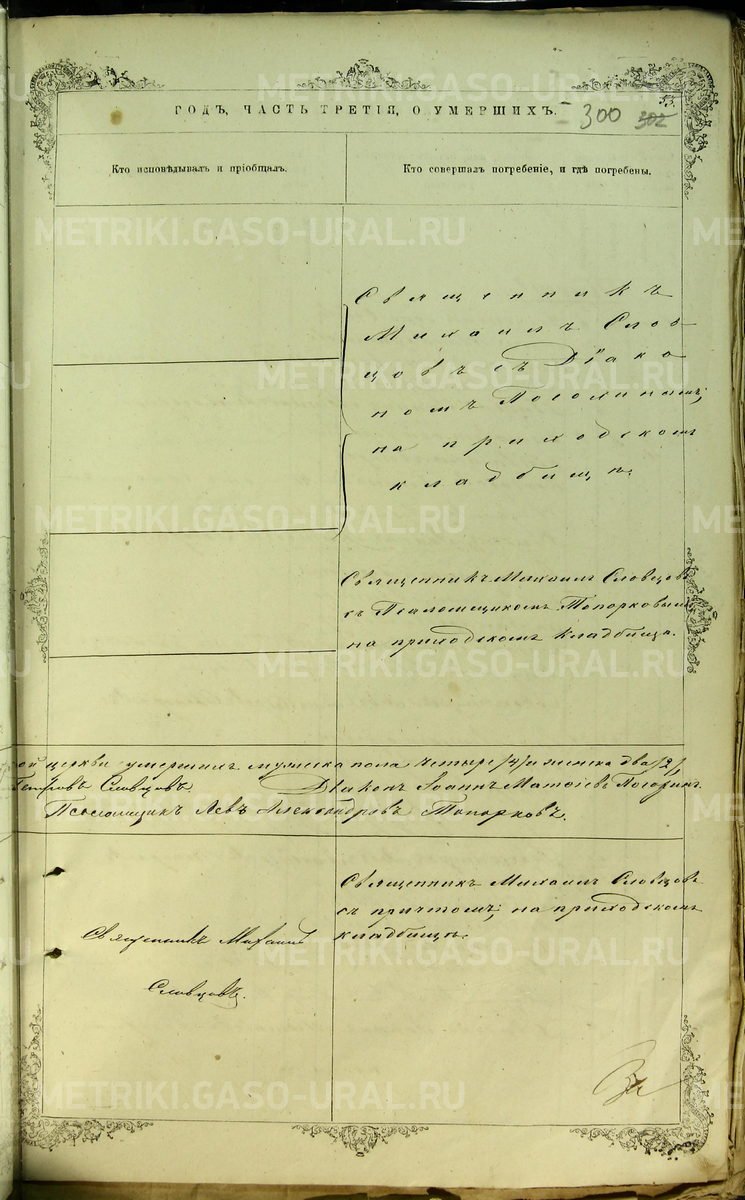 ГОДЪ, ЧАСТЬ ТРЕТІЯ, О УМЕРШИХЪ.
300 302
Кто исповѣдывалъ и пріобщалъ.
Кто совершалъ погребеніе, и гдѣ погребены.
Священникъ
Михаилъ Слов
цовъ съ Діако
номъ Погоринымъ;
на приходскомъ
кладбищѣ.
Священникъ Михаилъ Словцовъ
съ Псаломщикомъ Топорковымъ
на приходскомъ кладбищѣ.
ой церкви умершихъ мужеска пола четыре /4/ и женска два /2/
Петровъ Словцовъ. Діаконъ Іоаннъ Погоринъ
Псаломщикъ Левъ Александровъ Топорковъ.
Священникъ Михаилъ Словцовъ
съ причтомъ; на приходскомъ
кладбищѣ.
Священникъ Михаилъ
Словцовъ.
METRIKI.GASO-URAL.RU